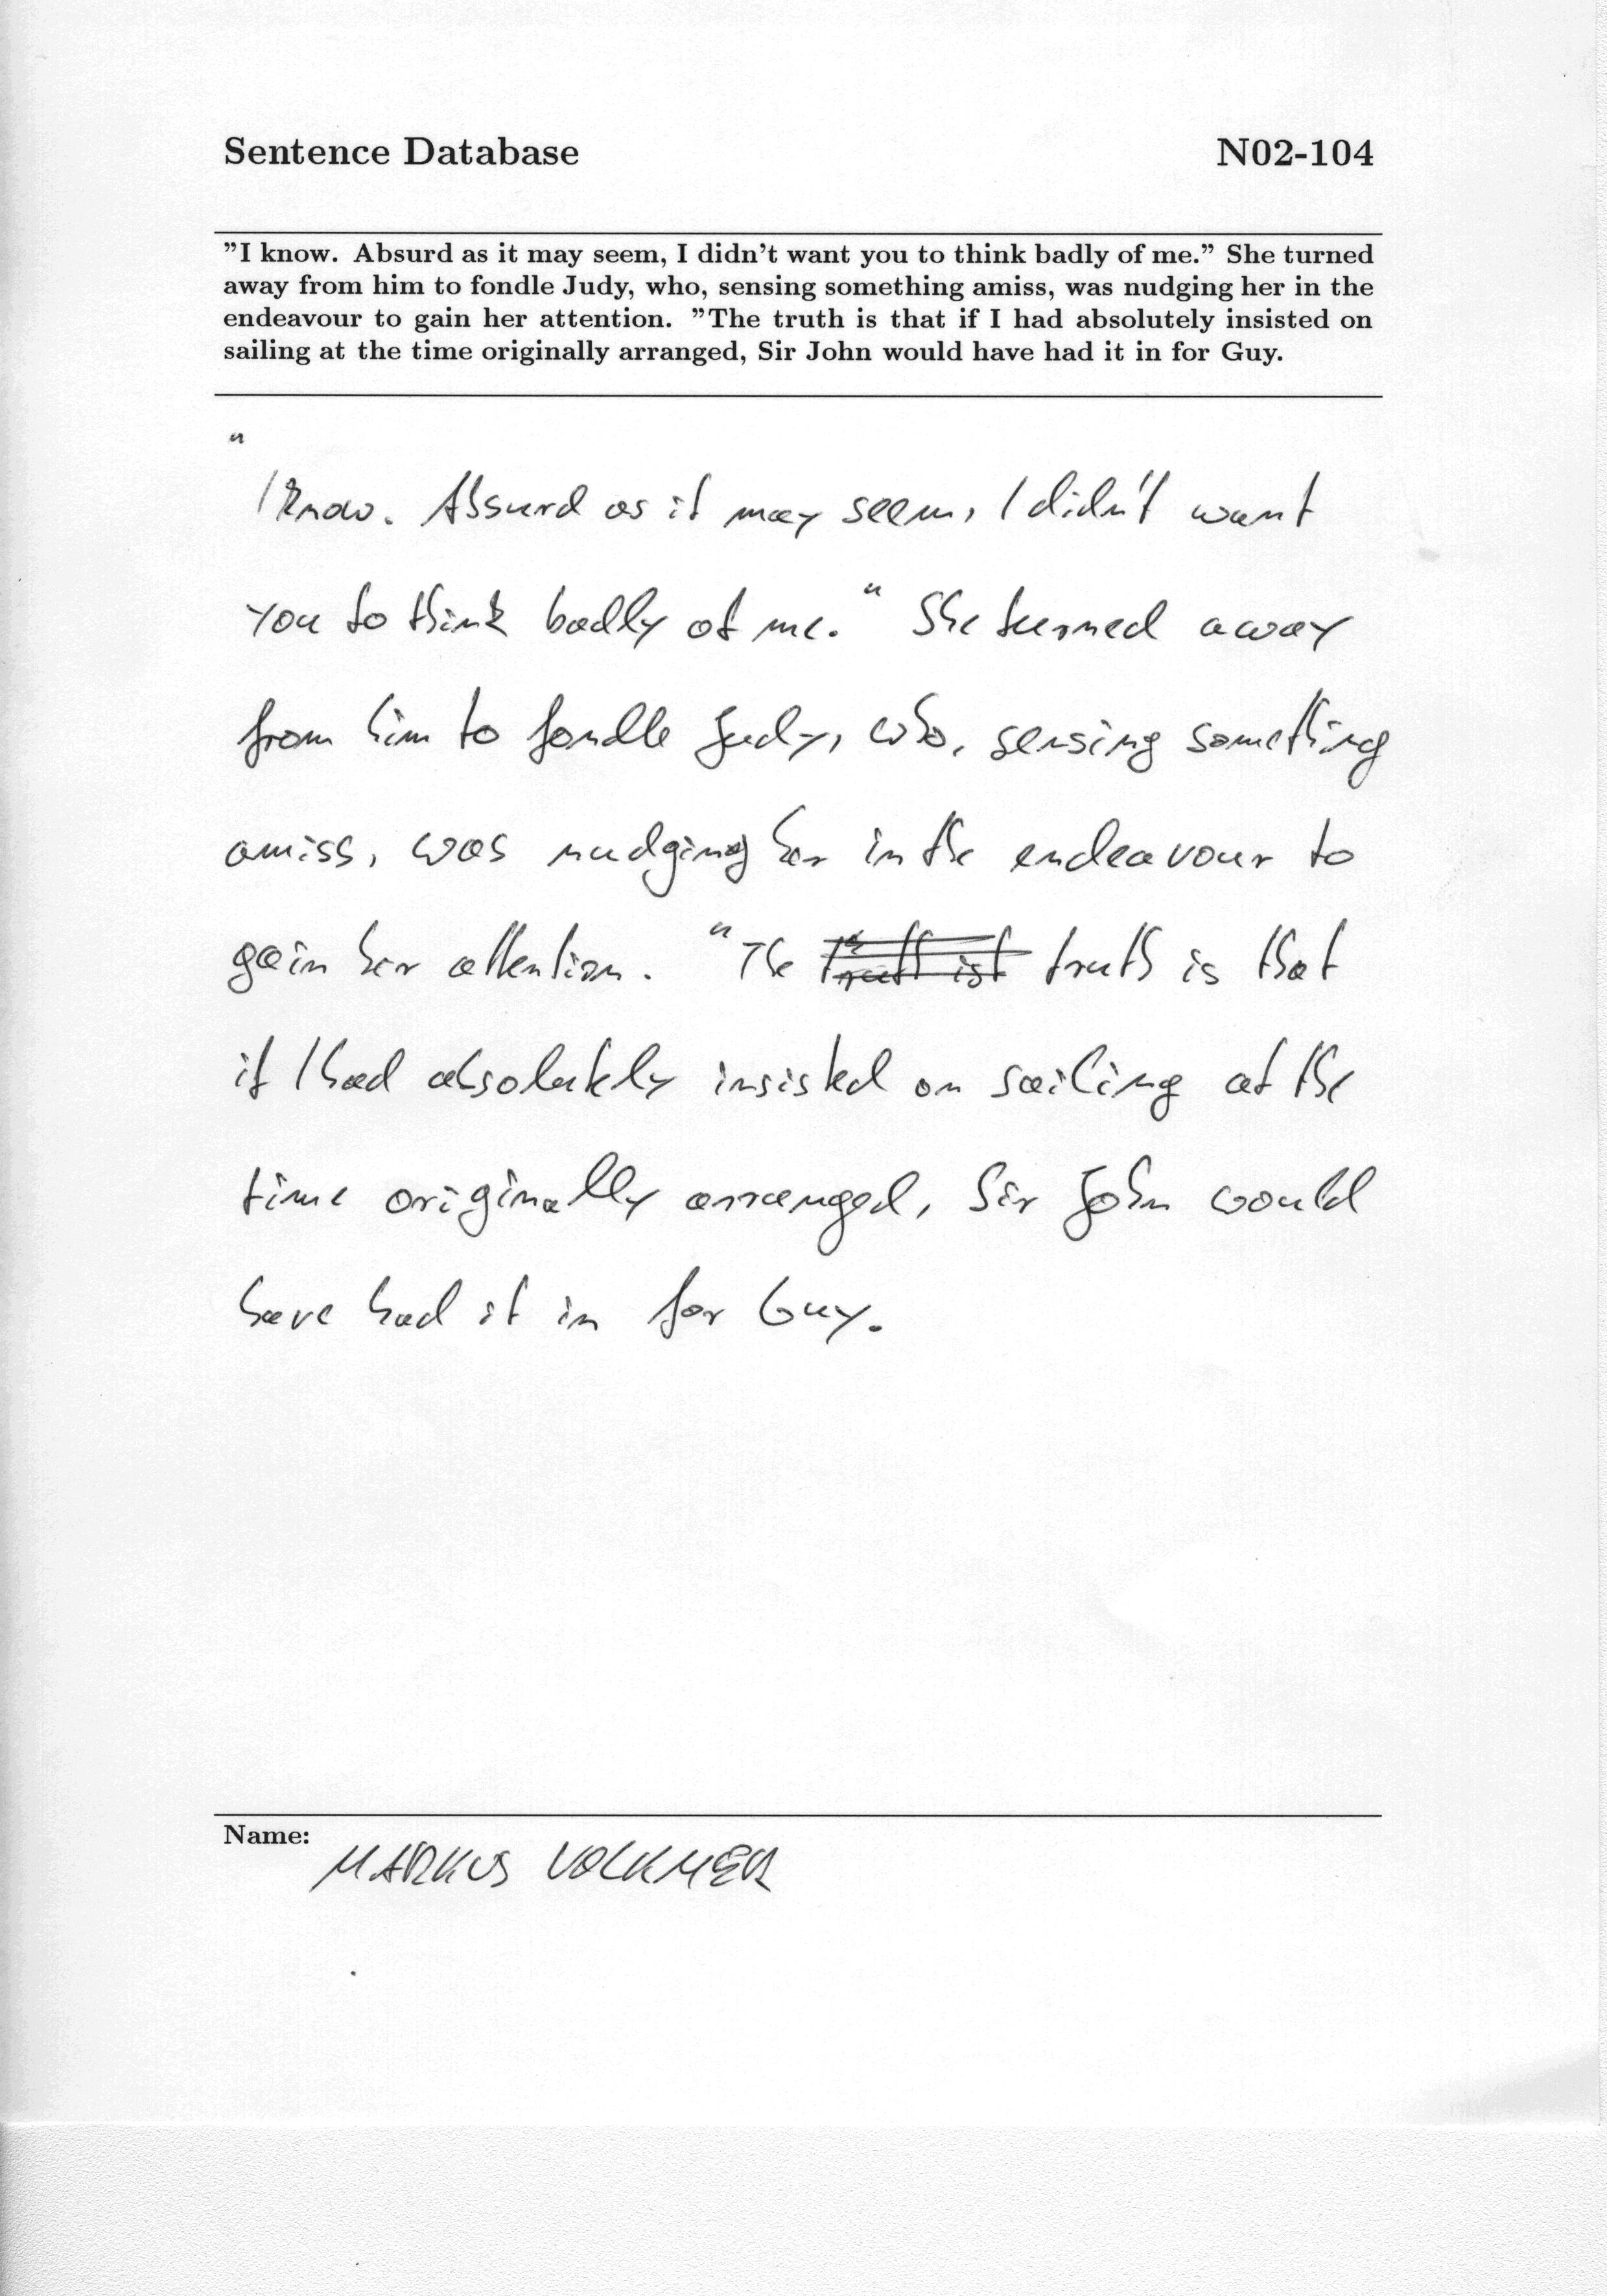 Sentence Database N02-104
"I know. Absurd as it may seem, I didn't want you to think badly of me." She turned
away from him to fondle Judy, who, sensing something amiss, was nudging her in the
endeavour to gain her attention. "The truth is that if I had absolutely insisted on
sailing at the time originally arranged, Sir John would have had it in for Guy.
"
I know. Absurd as it may seem, I didn't want
you to think badly of me." She turned away
from him to fondle Judy, who, sensing something
amiss, was nudging her in the endeavour to
gain her attention. "The truth ist truth is that
if I had absolutely insisted on sailing at the
time originally arranged, Sir John would
have had it in for Guy.
Name:
MARKUS VOLKMER